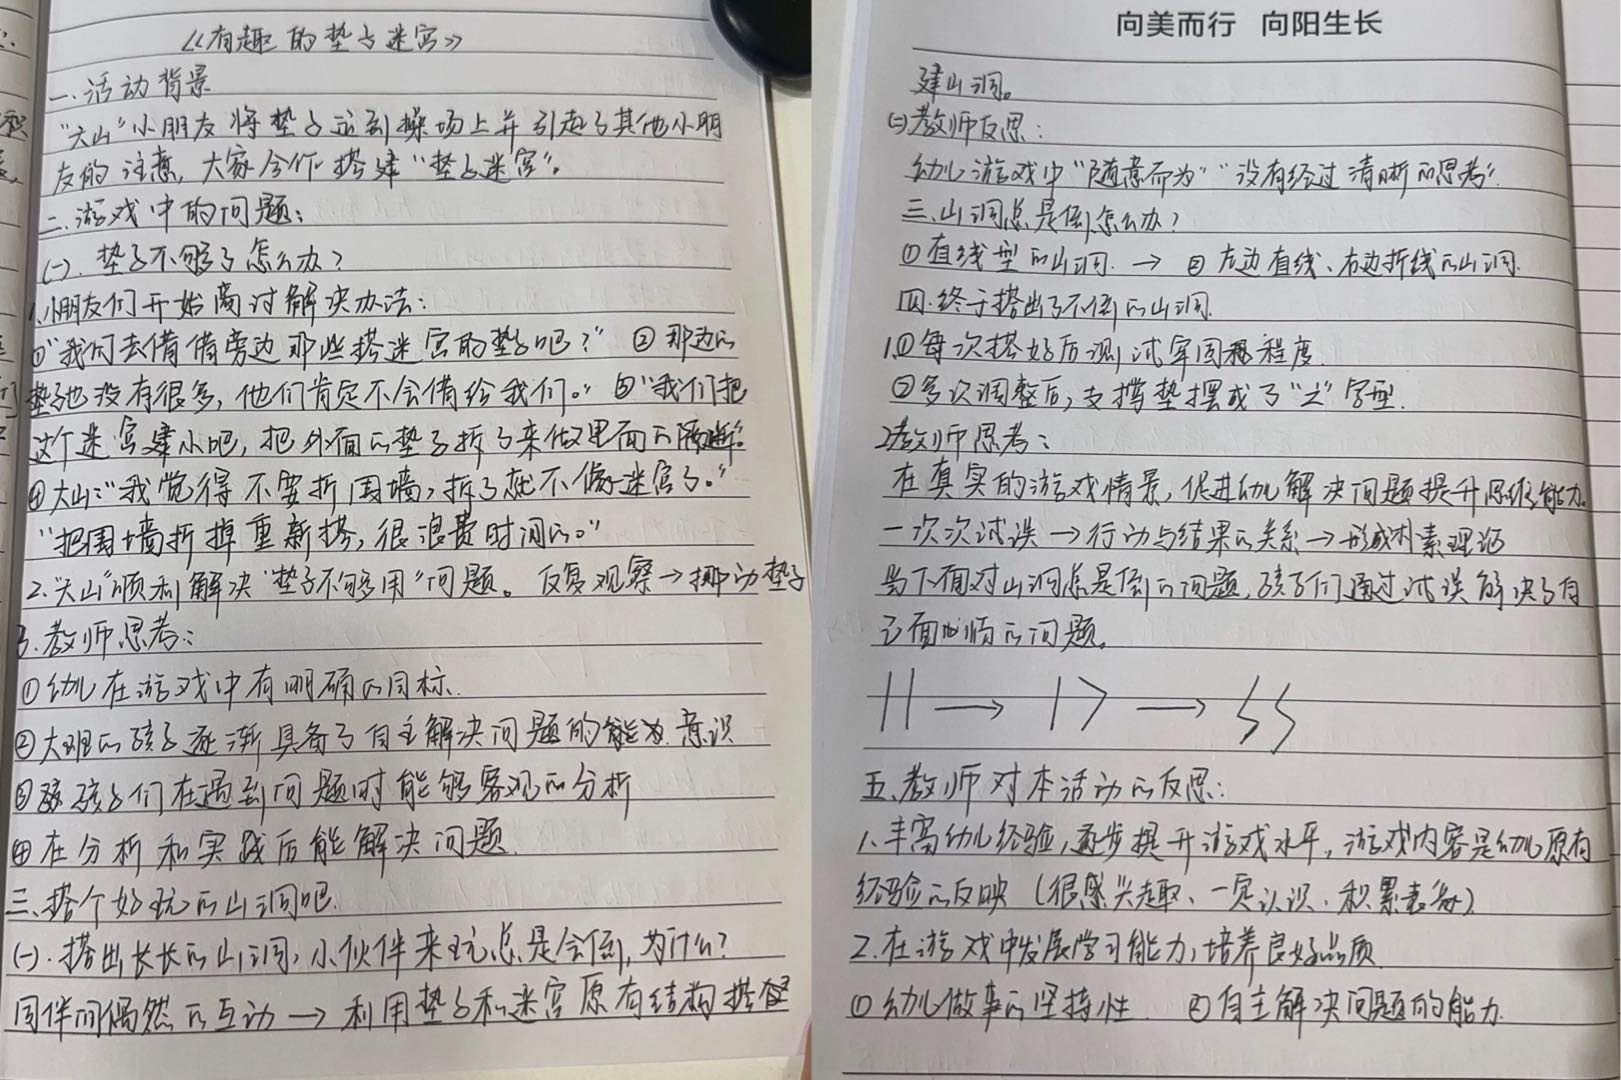 《有趣的垫子迷宫》
一.活动背景
"大山"小朋友将垫子运到操场上并引起了其他小朋
友的注意,大家合作搭建"垫子迷宫"。
二.游戏中的问题:
(一).垫子不够了怎么办?
1.小朋友们开始商讨解决办法:
①"我们去借借旁边那些搭迷宫的垫子吧?" ②那边的
垫子也没有很多,他们肯定不会借给我们。" ③"我们把
这个迷宫建小吧,把外面的垫子拆了来做里面的隔断"。
④大山:"我觉得不要拆围墙,拆了就不像迷宫了。"
"把围墙拆掉重新搭,很浪费时间的。"
2."大山"顺利解决"垫子不够用"问题。反复观察→挪动垫子
3.教师思考:
①幼儿在游戏中有明确的目标.
②大班的孩子逐渐具备了自主解决问题的意识
③孩子们在遇到问题时能够客观的分析
④在分析和实践后能解决问题.
三、搭个好玩的山洞吧.
(一).搭出长长的山洞,小伙伴来玩总是会倒,为什么?
同伴间偶然的互动→利用垫子和迷宫原有结构搭
向美而行 向阳生长
建山洞。
(二)教师反思:
幼儿游戏中"随意而为""没有经过清晰的思考".
三.山洞总是倒怎么办?
①直线型的山洞.→②左边直线、右边折线的山洞.
四.终于搭出了不倒的山洞.
1.①每次搭好后测试牢固程度.
②多次调整后,支撑垫摆成了"之"字型.
2.教师思考:
在真实的游戏情景,促进幼儿解决问题提升思维能力。
一次次试误→行动与结果的关系→形成朴素理论
当下面对山洞总是倒的问题,孩子们通过试误解决了自
己面临的问题。
五.教师对本活动的反思:
1.丰富幼儿经验,逐步提升游戏水平,游戏内容是幼儿原有
经验的反映(很感兴趣、一定认识、积累表象)
2.在游戏中发展学习能力,培养良好品质
①幼儿做事的坚持性. ②自主解决问题的能力.